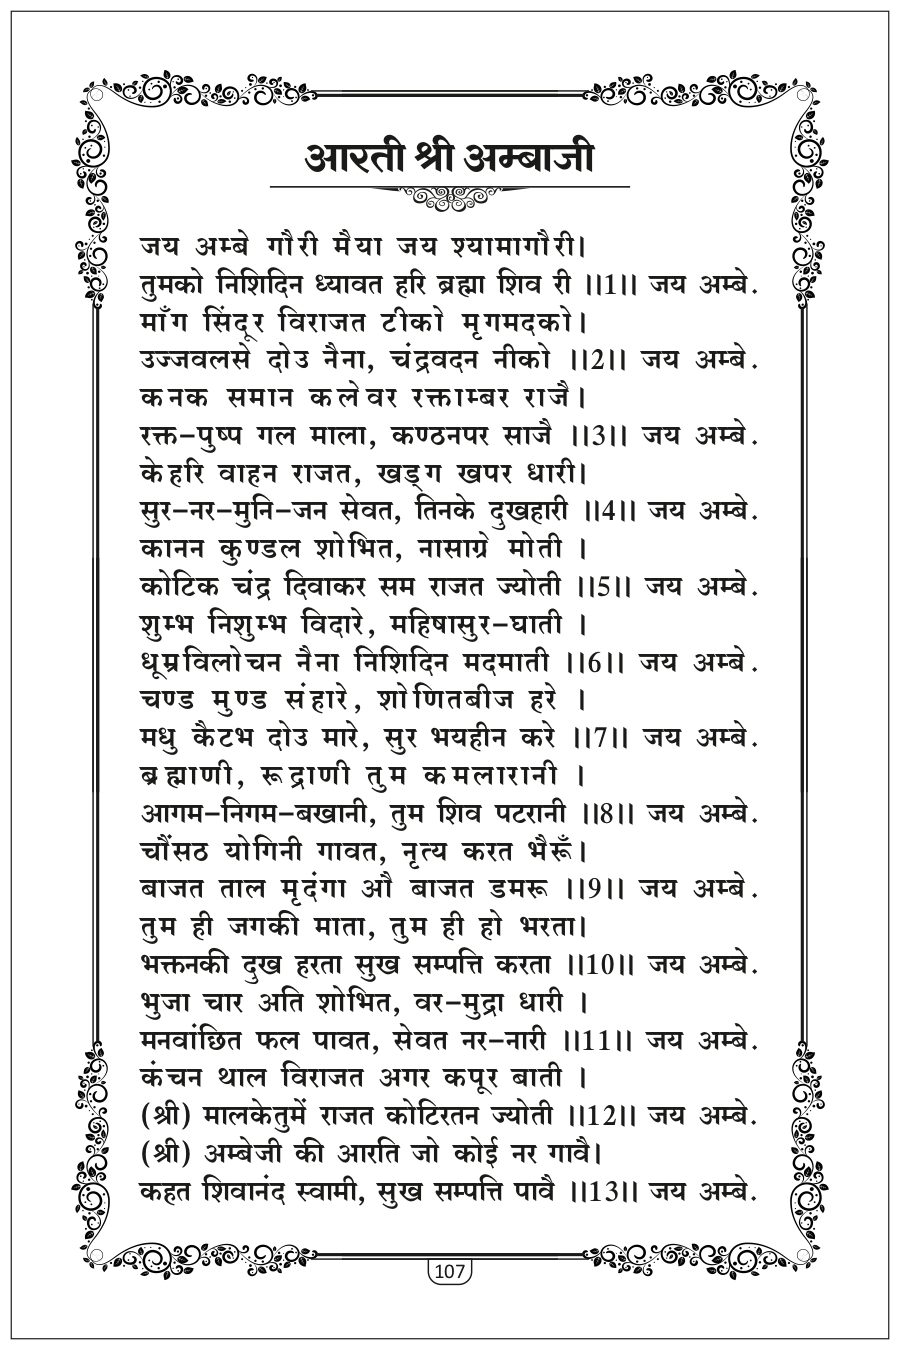 आरती श्री अम्बाजी
जय अम्बे गौरी मैया जय श्यामागौरी।
तुमको निशिदिन ध्यावत हरि ब्रह्मा शिव री ।।1।। जय अम्बे.
माँग सिंदूर विराजत टीको मृगमदको।
उज्जवलसे दोउ नैना, चंद्रवदन नीको ।।2।। जय अम्बे.
कनक समान कलेवर रक्ताम्बर राजै।
रक्त-पुष्प गल माला, कण्ठनपर साजै ।।3।। जय अम्बे.
केहरि वाहन राजत, खड्ग खपर धारी।
सुर-नर-मुनि-जन सेवत, तिनके दुखहारी ।।4।। जय अम्बे.
कानन कुण्डल शोभित, नासाग्रे मोती ।
कोटिक चंद्र दिवाकर सम राजत ज्योती ।।5।। जय अम्बे.
शुम्भ निशुम्भ विदारे, महिषासुर-घाती ।
धूम्रविलोचन नैना निशिदिन मदमाती ।।6।। जय अम्बे.
चण्ड मुण्ड संहारे, शोणितबीज हरे ।
मधु कैटभ दोउ मारे, सुर भयहीन करे ।।7।। जय अम्बे.
ब्रह्माणी, रूद्राणी तुम कमलारानी ।
आगम-निगम-बखानी, तुम शिव पटरानी ।।8।। जय अम्बे.
चौंसठ योगिनी गावत, नृत्य करत भैरूँ।
बाजत ताल मृदंगा औ बाजत डमरू ।।9।। जय अम्बे.
तुम ही जगकी माता, तुम ही हो भरता।
भक्तनकी दुख हरता सुख सम्पत्ति करता ।।10।। जय अम्बे.
भुजा चार अति शोभित, वर-मुद्रा धारी ।
मनवांछित फल पावत, सेवत नर-नारी ।।11।। जय अम्बे.
कंचन थाल विराजत अगर कपूर बाती ।
(श्री) मालकेतुमें राजत कोटिरतन ज्योती ।।12।। जय अम्बे.
(श्री) अम्बेजी की आरति जो कोई नर गावै।
कहत शिवानंद स्वामी, सुख सम्पत्ति पावै ।।13।। जय अम्बे.
107